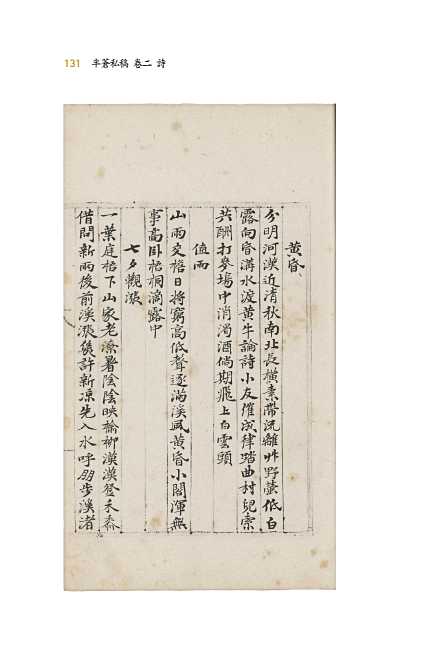 131 半蒼私稿 卷二 詩
黃昏
分明河漢近清秋南北長橫素帶流籬艸野螢低白
露向昏溝水渡黃牛論詩小友催成律踏曲村兒索
共酬打麥場中消濁酒倘期飛上白雲頭
值雨
山雨交格日將窮高低聲逐滿溪風黃昏小閣渾無
事高卧梧桐滴露中
七夕觀漲
一葉庭梧下山家老潦暑陰陰映榆柳漠漠登禾黍
借問新雨後前溪漲幾許新凉先入水呼朋步溪渚